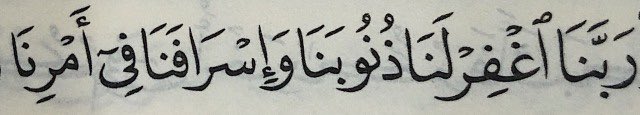 رَبَّنَا ٱغْفِرْ لَنَا ذُنُوبَنَا وَإِسْرَافَنَا فِىٓ أَمْرِنَا